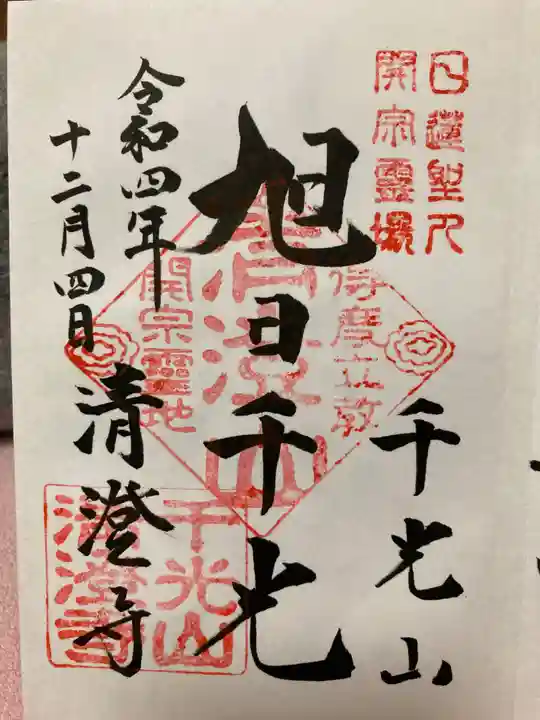 日蓮聖人
開宗霊場
千光山
旭日千光
清澄山
得度立教
開宗霊地
令和四年
十二月四日
清澄寺
千光山
清澄寺